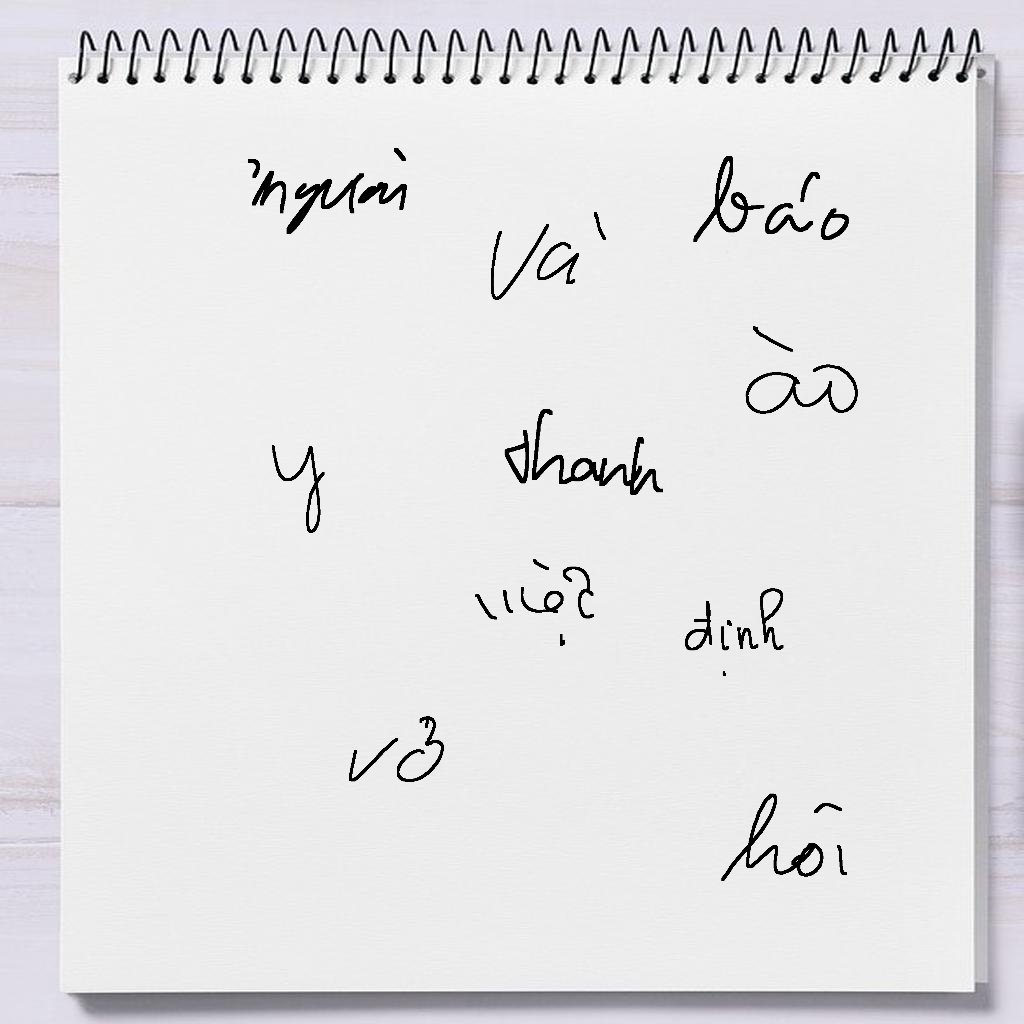 người
và báo
ào
y thanh
việc định
vở
hôi